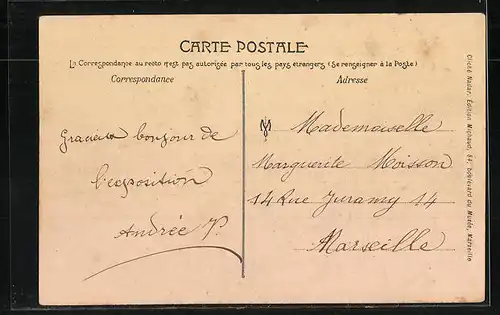 CARTE POSTALE
La Correspondance au recto n'est pas autorisée par tous les pays étrangers (Se renseigner à la Poste)
Correspondance
Adresse
bonjour de
l'exposition
Andrée P.
M Mademoiselle
Marguerite Moisson
14 Rue Juramy 14
Marseille
Cliché Nadar, Édition Michaud, boulevard du Musée, Marseille